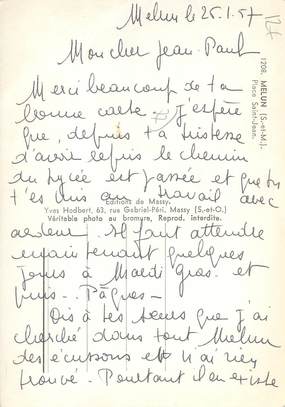 Melun le 25.1.57
Mon cher Jean-Paul
Merci beaucoup de ta
bonne carte. J'espère
que, depuis ta tristesse
d'avoir repris le chemin
du lycée est passée et que tu
t'es mis au travail avec
ardeur. Il faut attendre
maintenant quelques
jours à Mardi Gras et
puis.. Pâques -
Dis à tes sœurs que j'ai
cherché dans tout Melun
des écussons et n'ai rien
trouvé. Pourtant il en existe
1208. MELUN (S.-et-M.).
Place Saint-Jean.
Editions de Massy.
Yves Hodbert, 63, rue Gabriel-Péri, Massy (S.-et-O.)
Véritable photo au bromure, Reprod. interdite.